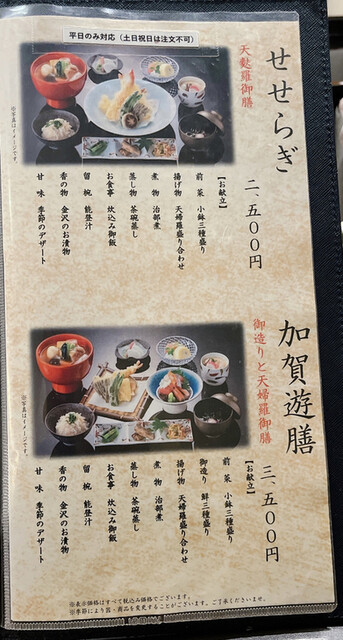 平日のみ対応（土日祝日は注文不可）
せせらぎ
天麩羅御膳
二、五〇〇円
【お献立】
前菜 小鉢三種盛り
揚げ物 天婦羅盛り合わせ
煮物 治部煮
蒸し物 茶碗蒸し
お食事 炊込み御飯
留椀 能登汁
香の物 金沢のお漬物
甘味 季節のデザート
※写真はイメージです。
加賀遊膳
御造りと天婦羅御膳
三、五〇〇円
【お献立】
前菜 小鉢三種盛り
御造り 鮮三種盛り
揚げ物 天婦羅盛り合わせ
煮物 治部煮
蒸し物 茶碗蒸し
お食事 炊込み御飯
留椀 能登汁
香の物 金沢のお漬物
甘味 季節のデザート
※写真はイメージです。
※表示価格はすべて税込み価格でございます。
※季節により器・商品を変更することがございます。ご了承くださいませ。